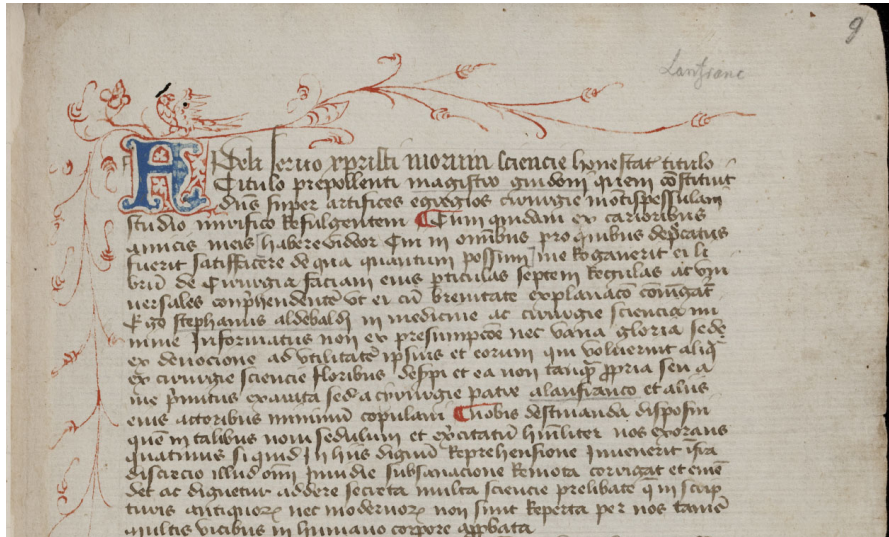 9
Lanfranc
A Fideli seruo xpristi morum sciencie honestat titulo
Titulo prepollenti magistro guidoni quem cõstituit
dñs super artifices egregios cirurgie motispessulam
studio mirifico Refulgentem Cum quidam ex carioribus
amicis meis habere videor Cui in omnibus pro quibus dep̃catus
fuerit satisfacere de qua quantum possum me Rogauerit ei li
brũ de Cirurgia faciam eius p̱ticulas septem Regulas ac vni
uersales conp̱hendentẽ vt ei cũ breuitate explanacõ
Ego stephanus aldebaldi in medicine ac cirurgie sciencia mi
nime Informatus non ex presumpcõe nec vana gloria sede
ex deuocione ad vtilitatẽ ipsius et eorum qui voluerint aliq̃
ex cirurgie sciencie floribus et ea non tanq̃ p̱pria seu a
me exarata sed a cirurgie patre alanfranco et alijs
eius actoribus minimũ copulaui Cuobis destinanda disposui
quẽ in talibus noui sedulum et hũiliter uos exorans
quatinus si quid In hijs dignũ Reprehensione Inuenerit
discrecio illud omĩ Inuidie subsanacione Remota corrigat et emẽ
det ac dignetur addere secreta multa sciencie prelibate q̃ in scrip
turis antiquorꝝ nec modernorꝝ non sunt Reperta per uos tamẽ
multis vicibus in humano corpore app̱bata